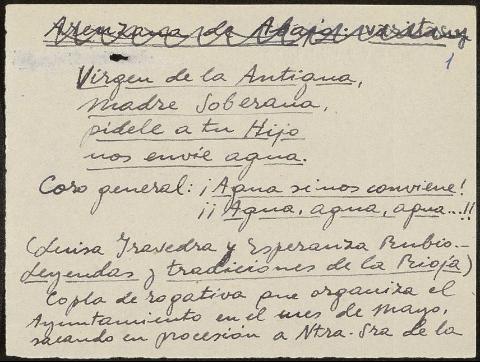 Arenzana de Abajo: varitas y
1
Virgen de la Antigua,
Madre Soberana,
pídele a tu Hijo
nos envíe agua.
Coro general: ¡Agua si nos conviene!
¡¡Agua, agua, agua...!!
(Luisa Yravedra y Esperanza Rubio.-
Leyendas y tradiciones de la Rioja)
Copla de rogativa que organiza el
Ayuntamiento en el mes de Mayo,
sacando en procesión a Ntra. Sra de la